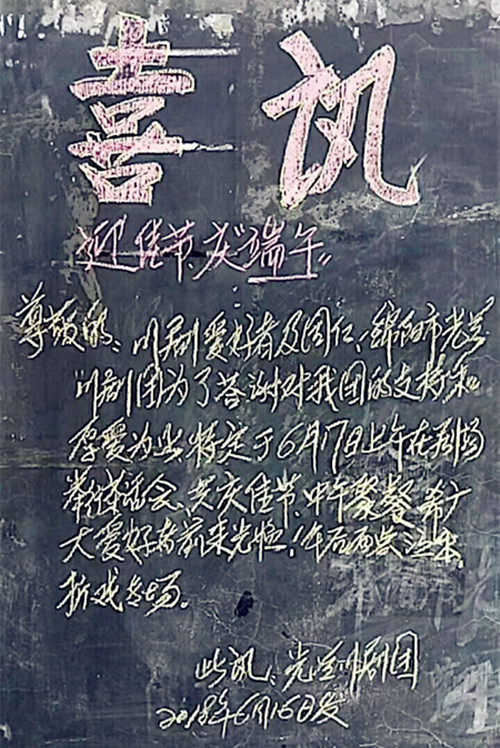 喜讯
迎佳节、庆"端午"
尊敬的:川剧爱好者及同仁、绵阳市光兰
川剧团为了答谢对我团的支持和
厚爱为此特定于6月17日上午在剧场
举行茶话会、共庆佳节、中午聚餐希广
大爱好者前来光临!午后两点演出
折戏专场。
此讯:光兰川剧团
2018年6月15日发